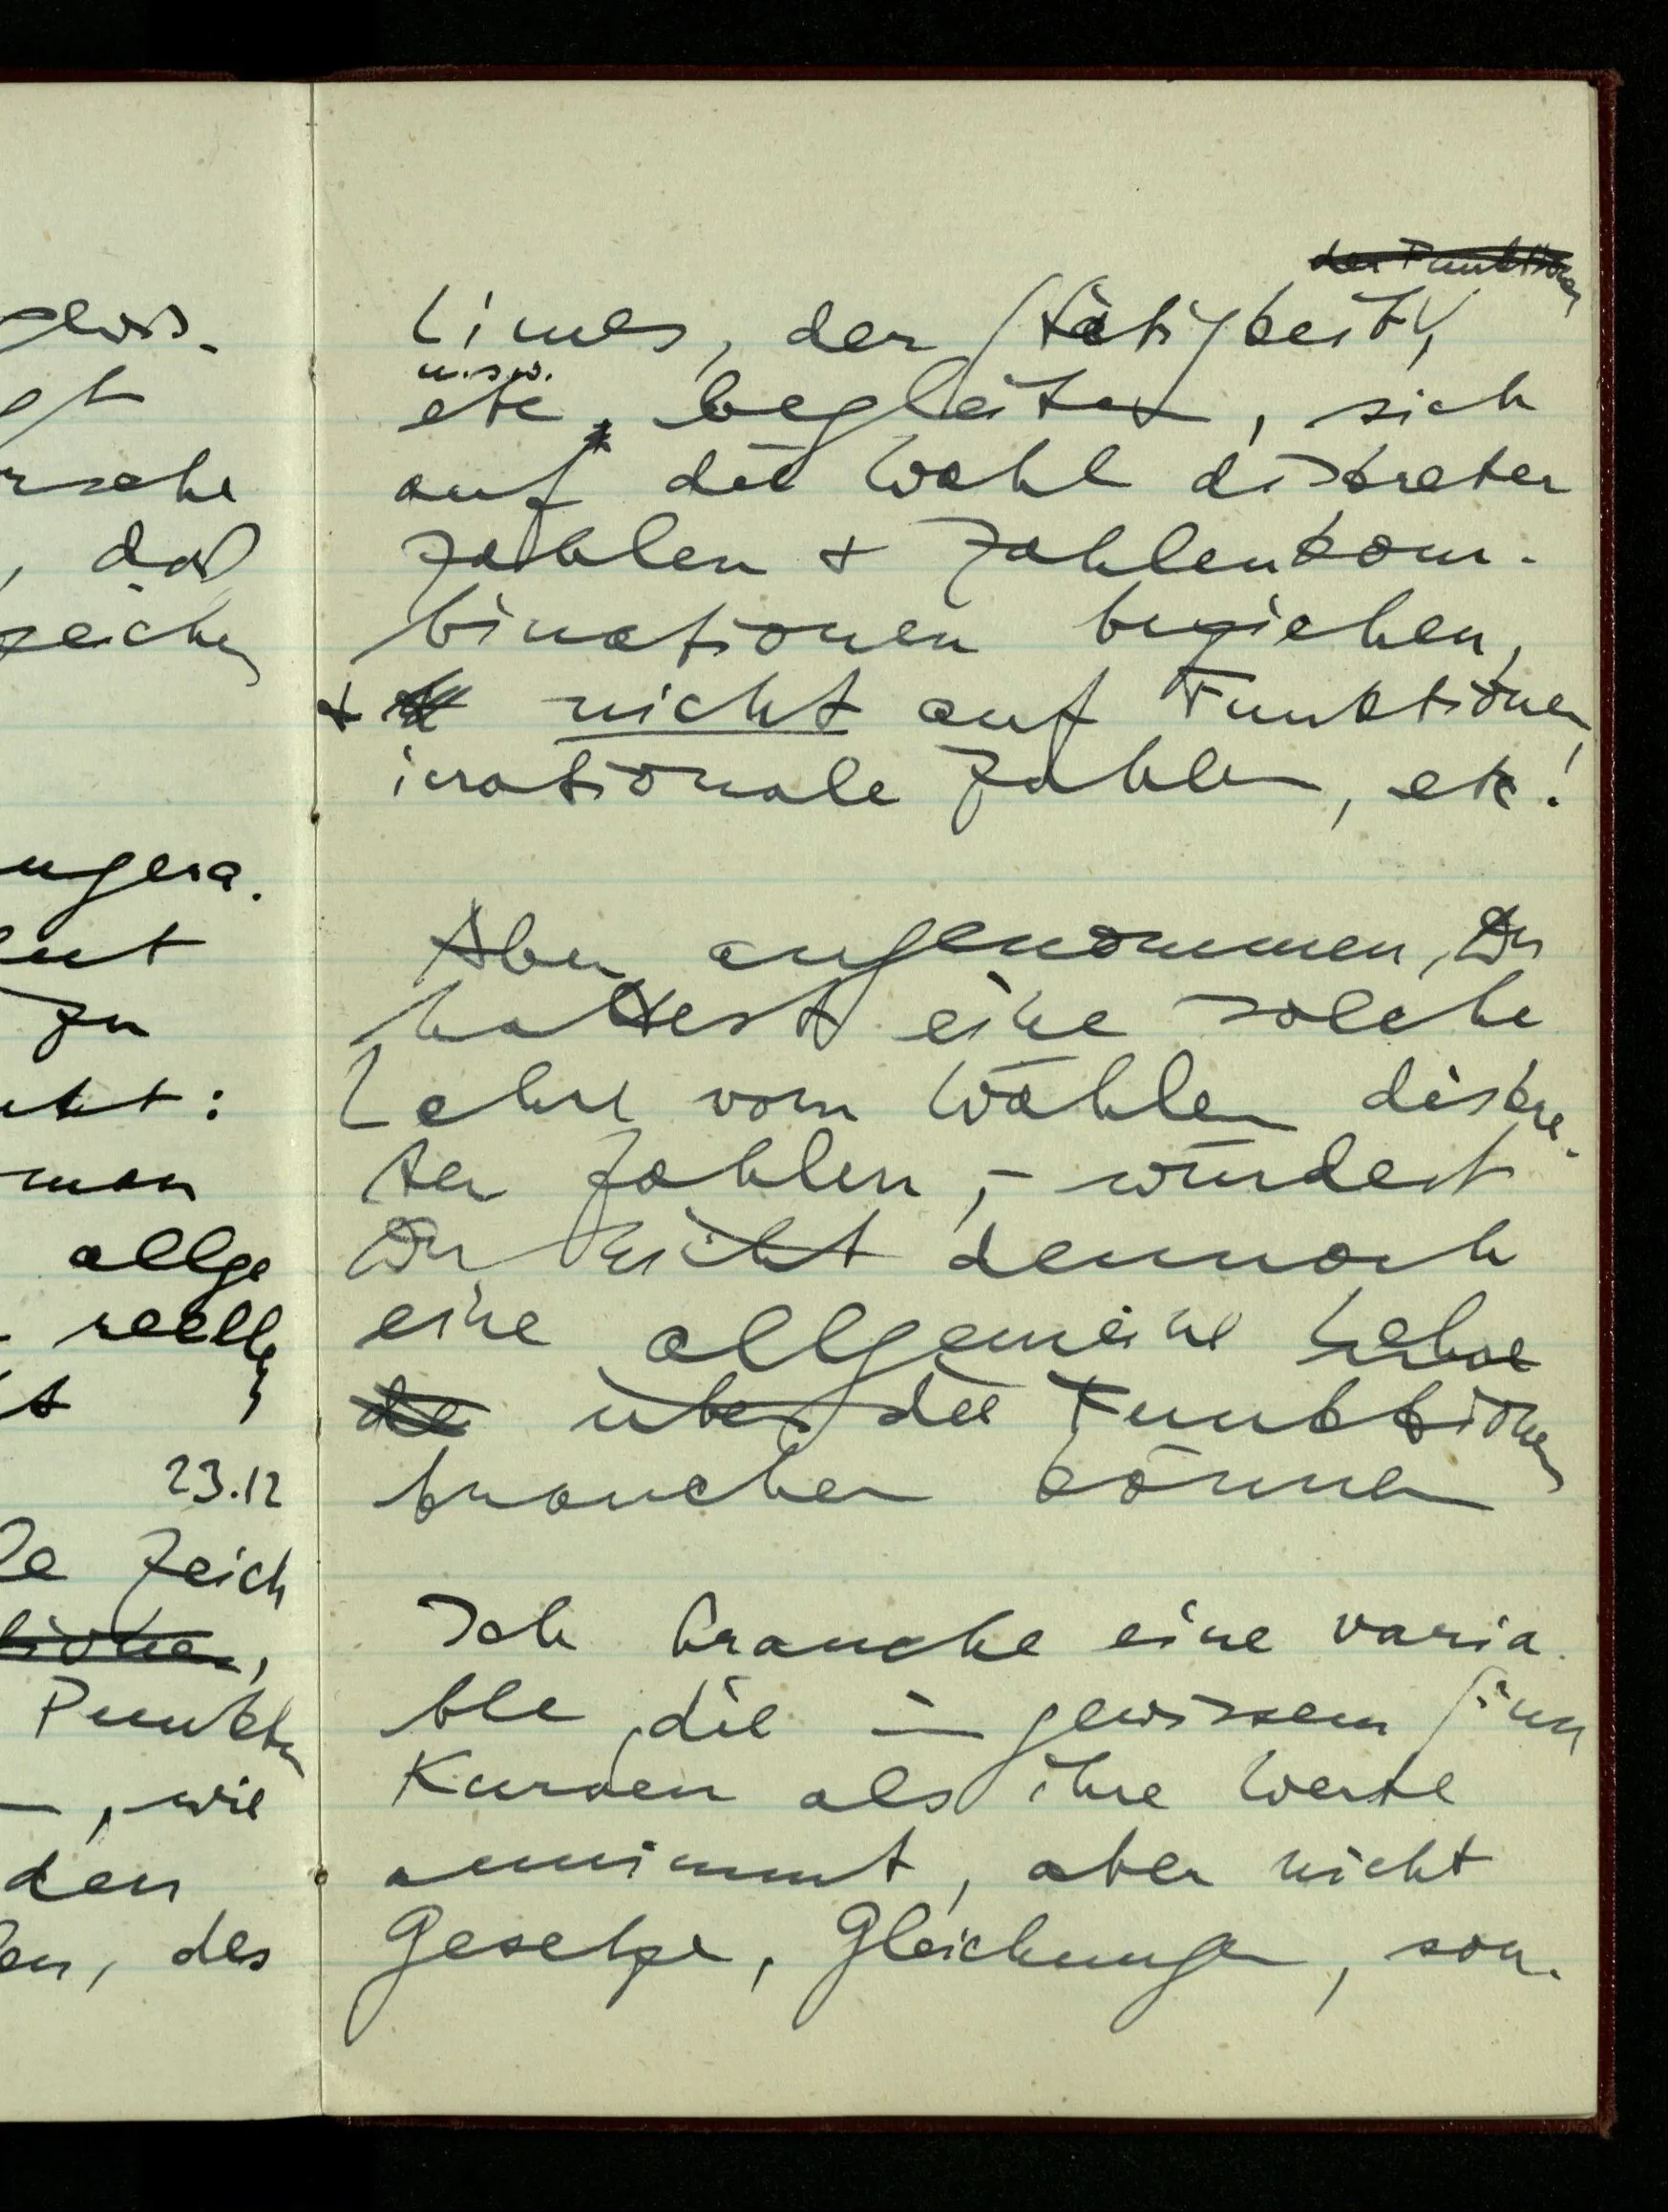 glors.
gt
rsche
, daß
zeichen
ngera.
ent
zu
:
man
allge
reelle
23.12
le Zeich
tionen,
Punkte
, wie
den
en, des
der Funktionen
Limes, der Stätigkeit,
u.s.w.
etc, begleiten, sich
auf die Wahl diskreter
Zahlen & Zahlenkom-
binationen beziehen,
& nicht auf Funktionen,
irrationale Zahlen, etc!
Aber angenommen, Du
hattest eine solche
Lehre vom Wählen diskre-
ter Zahlen, – würdest
Du nicht dennoch
eine allgemeine Lehre
de über die Funktionen
brauchen können
Ich brauche eine varia-
ble, die in gewissem Sinn
Kurven als ihre Werte
annimmt, aber nicht
Gesetze, Gleichungen, son-